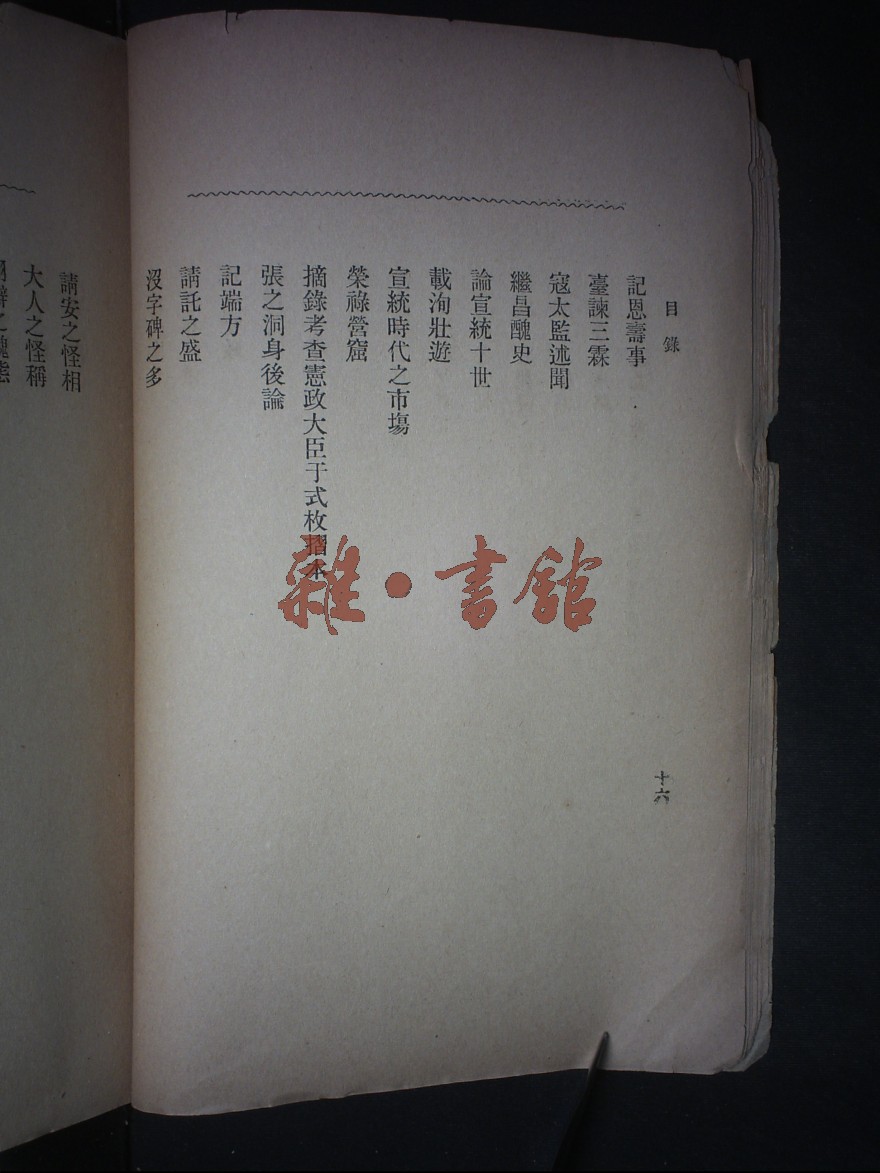 目錄
十六
記恩壽事
臺諫三霖
寇太監述聞
繼昌醜史
論宣統十世
載洵壯遊
宣統時代之市塲
榮祿營窟
摘錄考查憲政大臣于式枚摺本
張之洞身後論
記端方
請託之盛
沒字碑之多
請安之怪相
大人之怪稱
之醜態
雜·書館